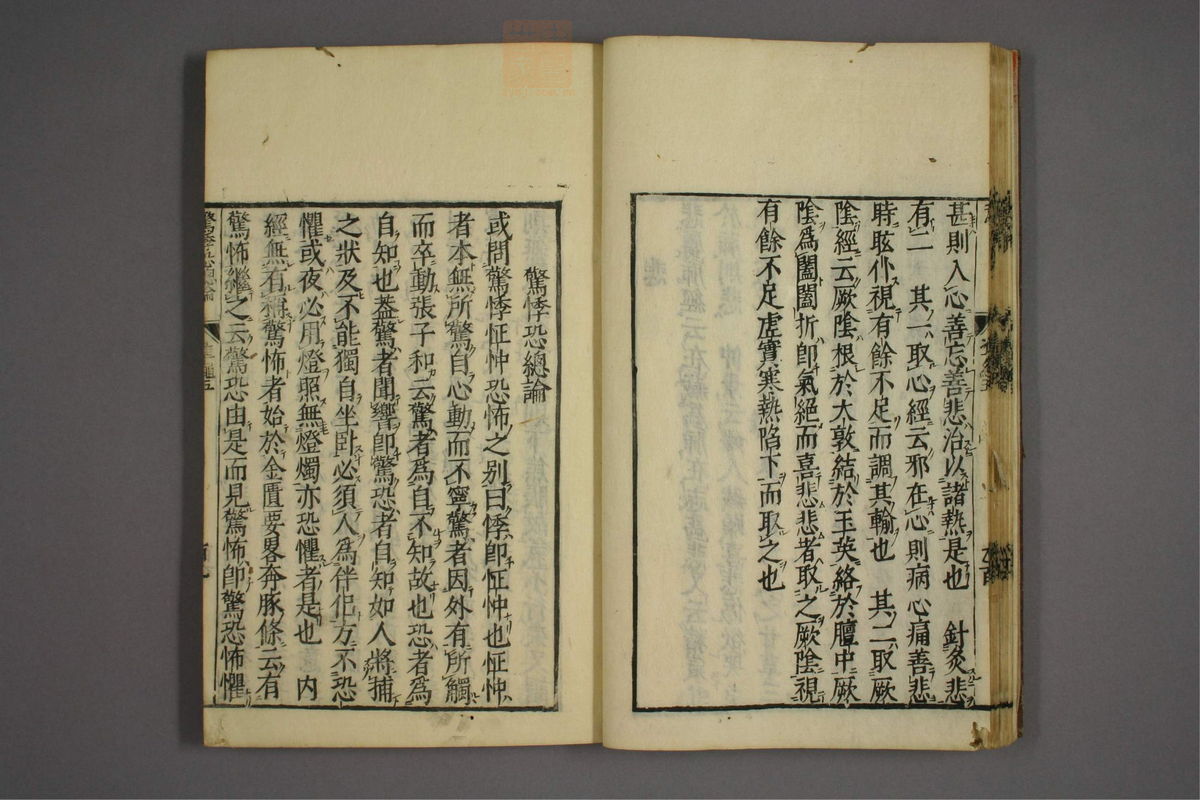 甚則入心善忘善悲治以諸熱是也　針灸悲
有二　其一取心經云邪在心則病心痛善悲
時眩仆視有餘不足而調其輸也　其二取厥
陰經云厥陰根於大敦結於玉英絡於膻中厥
陰爲闔闔折卽氣絕而喜悲悲者取之厥陰視
有餘不足虛實寒熱陷下而取之也
驚悸恐總論
或問驚悸怔忡恐怖之别曰悸卽怔忡也怔忡
者本無所驚自心動而不寧驚者因外有所觸
而卒動張子和云驚者爲自不知故也恐者爲
自知也葢驚者聞響卽驚恐者自知如人將捕
之狀及不能獨自坐卧必須人爲伴侶方不恐
懼或夜必用燈照無燈燭亦恐懼者是也　内
經無有稱驚怖者始於金匱要畧奔豚條云有
驚怖繼之云驚恐由是而見驚怖卽驚恐怖懼